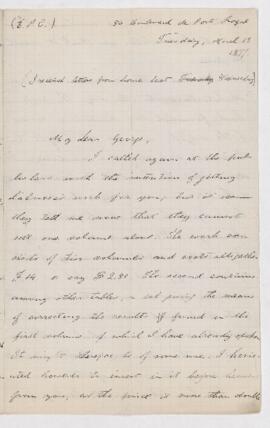 (E. P. C.) 80 Boulevard de Port Royal
Tuesday, March 13
1877
(I received letters from home last Wednesday)
My dear George,
I called again at the
with the intention of getting
work for you, but it
they tell me now that they cannot
sell one volume alone. The work con
sists of two volumes and costs altogether
F 14 or say $2.80. The second contains
among other tables, a set giving the means
of correcting the results if found in the
first volume of which I have already spoken
It might therefore be of some use. I hesi
tated however to invest in it before hearing
from you, as the price is more than double